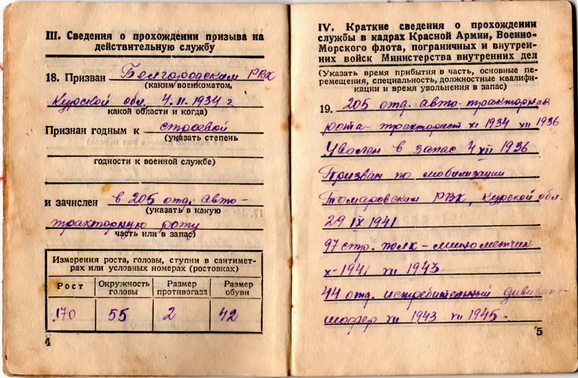 III. Сведения о прохождении призыва на
действительную службу
18. Призван Белгородским РВК
(каким военкоматом,
Курской обл. 4.II.1934 г
какой области и когда)
Признан годным к строевой
(указать степень
годности к военной службе)
и зачислен в 205 отд. авто-
(указать в какую
тракторную роту
часть или в запас)
Измерения роста, головы, ступни в сантимет-
рах или условных номерах (ростовках)
Рост Окружность головы Размер противогаза Размер обуви
170 55 2 42
4
IV. Краткие сведения о прохождении
службы в кадрах Красной Армии, Военно-
Морского флота, пограничных и внутрен-
них войск Министерства внутренних дел
(Указать время прибытия в часть, основные пе-
ремещения, специальность, должностные квалифи-
кации и время увольнения в запас)
19. 205 отд. авто-тракторная
рота-тракторист XI 1934 XII 1936
Уволен в запас 4 XII 1936
Призван по мобилизации
Томаровским РВК, Курской обл.
29 IX 1941
97 стр. полк - минометчик
X-1941 VII 1943
44 отд. истребительный дивизион
шофер VII 1943 VII 1945-
5